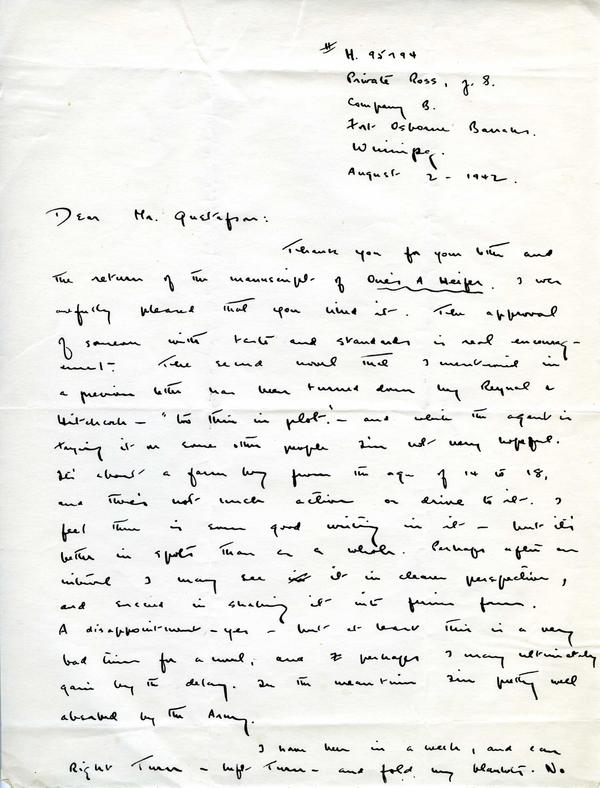 # H. 95794
Private Ross, J. S.
Company B.
Fort Osborne Barracks.
Winnipeg.
August 2 - 1942.
Dear Mr. Gustafson:
Thank you for your letter and
the return of the manuscript of One's A Heifer. I was
awfully pleased that you liked it. The approval
of someone with taste and standards is real encourage-
ment. The second novel that I mentioned in
a previous letter has been turned down by Reynal &
Hitchcock - "too thin in plot" - and while the agent is
trying it on some other people I'm not very hopeful.
It's about a farm boy from the age of 14 to 18,
and there's not much action or drive to it. I
feel there is some good writing in it - but it's
better in spots than as a whole. Perhaps after an
interval I may see it in clearer perspective,
and succeed in shaking it into firmer form.
A disappointment - yes - but at least this is a very
bad time for a novel, and perhaps I may ultimately
gain by the delay. In the meantime I'm pretty well
absorbed by the Army.
I have been in a week, and can
Right Turn - Left Turn - and fold my blankets. No